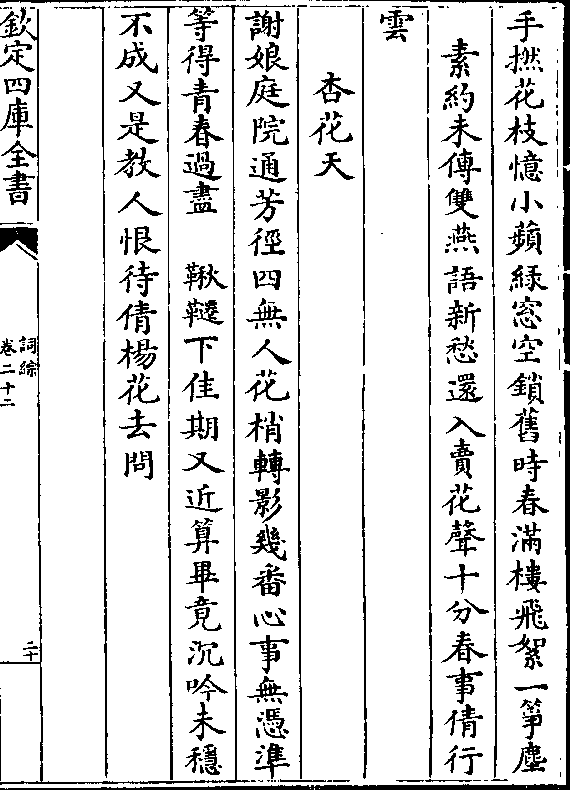 手撚花枝憶小蘋緑窓空鎖舊時春滿樓飛絮一箏塵
素約未傳雙燕語新愁還入賣花聲十分春事倩行
雲
杏花天
謝娘庭院通芳徑四無人花梢轉影幾番心事無憑準
等得青春過盡　鞦韆下佳期又近算畢竟沉吟未穩
不成又是教人恨待倩楊花去問
欽定四庫全書
詞綜
卷二十二
二十